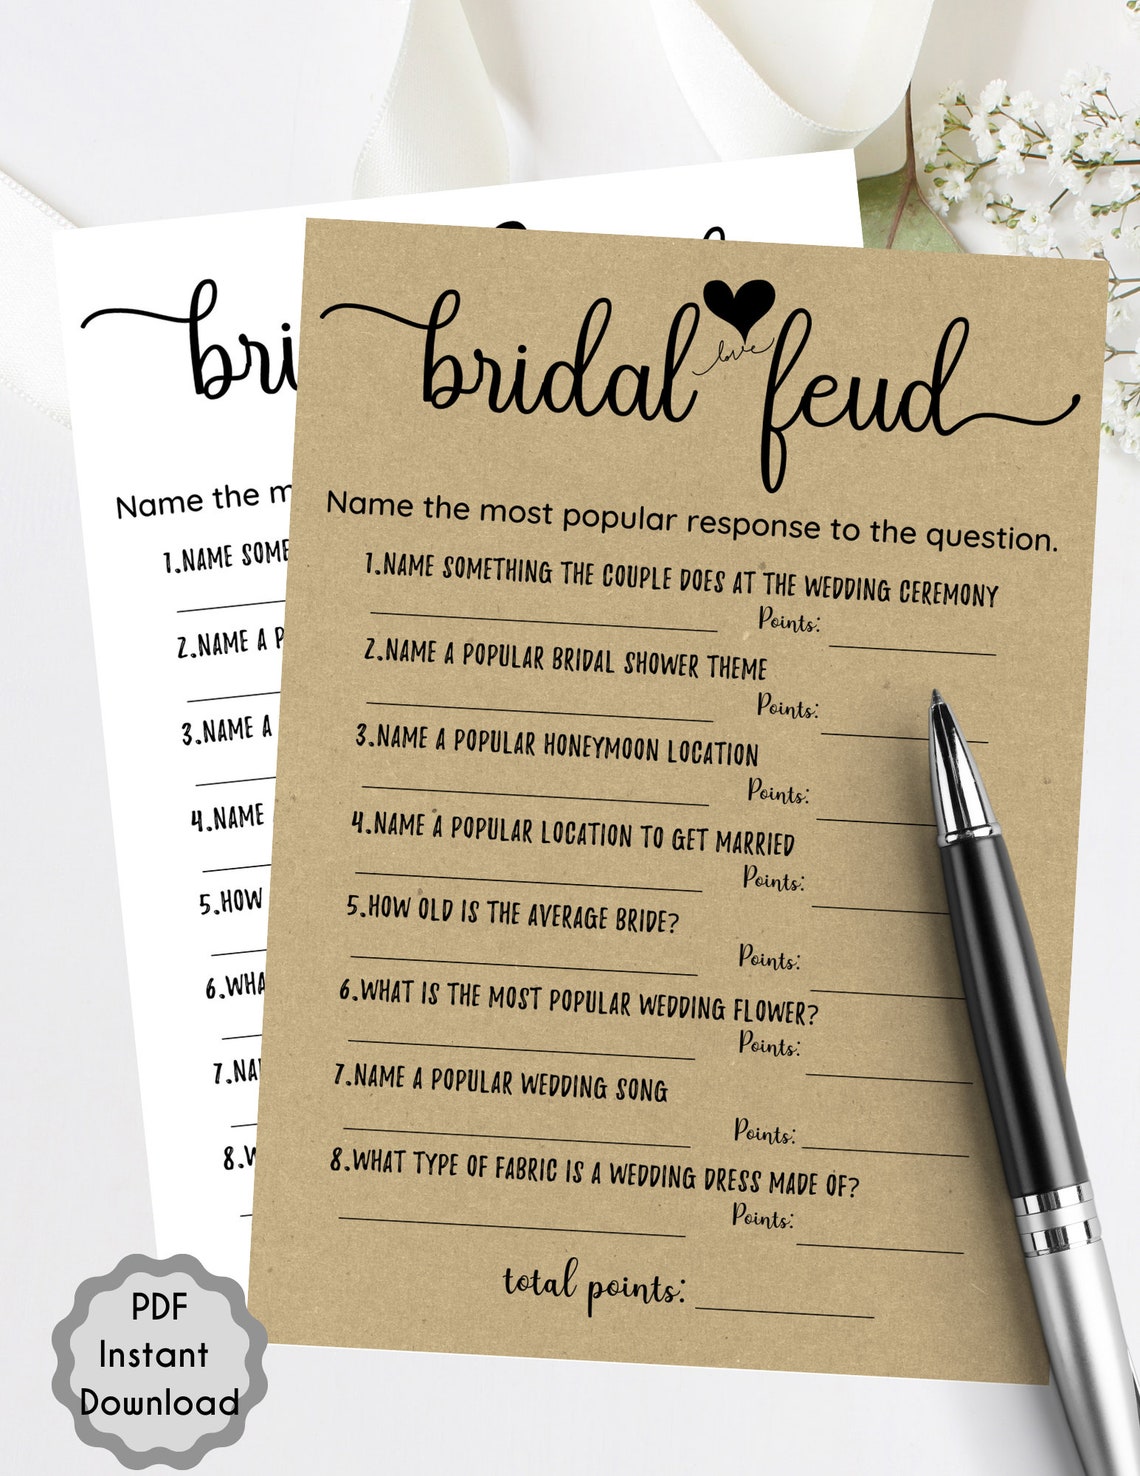 bri
Name the m
1.NAME SOME
2.NAME A P
3.NAME A
4.NAME
5.HOW
6.WHA
7.NA
8.W
bridal love feud
Name the most popular response to the question.
1.NAME SOMETHING THE COUPLE DOES AT THE WEDDING CEREMONY
Points:
2.NAME A POPULAR BRIDAL SHOWER THEME
Points:
3.NAME A POPULAR HONEYMOON LOCATION
Points:
4.NAME A POPULAR LOCATION TO GET MARRIED
Points:
5.HOW OLD IS THE AVERAGE BRIDE?
Points:
6.WHAT IS THE MOST POPULAR WEDDING FLOWER?
Points:
7.NAME A POPULAR WEDDING SONG
Points:
8.WHAT TYPE OF FABRIC IS A WEDDING DRESS MADE OF?
Points:
total points:
PDF
Instant
Download